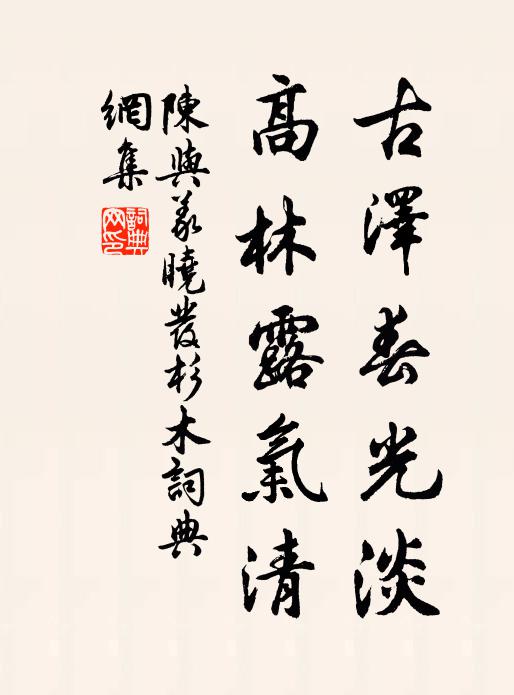 古澤春光淡
高林露氣清
陳與義曉發杉木詞典
網集
詞典
网印